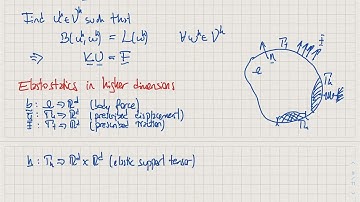 Find u^h ∈ V^h such that
B(u^h, w^h) = L(w^h) ∀ w^h ∈ V^h
⇒ K U = F
Elastostatics in higher dimensions
b : Ω → ℝ^d (body force)
: Γ → ℝ^d (prescribed displacement)
t : Γ_t → ℝ^d (prescribed traction)
k : Γ_k → ℝ^d × ℝ^d (elastic support tensor)
Γ_t
n
Ω
Γ_k